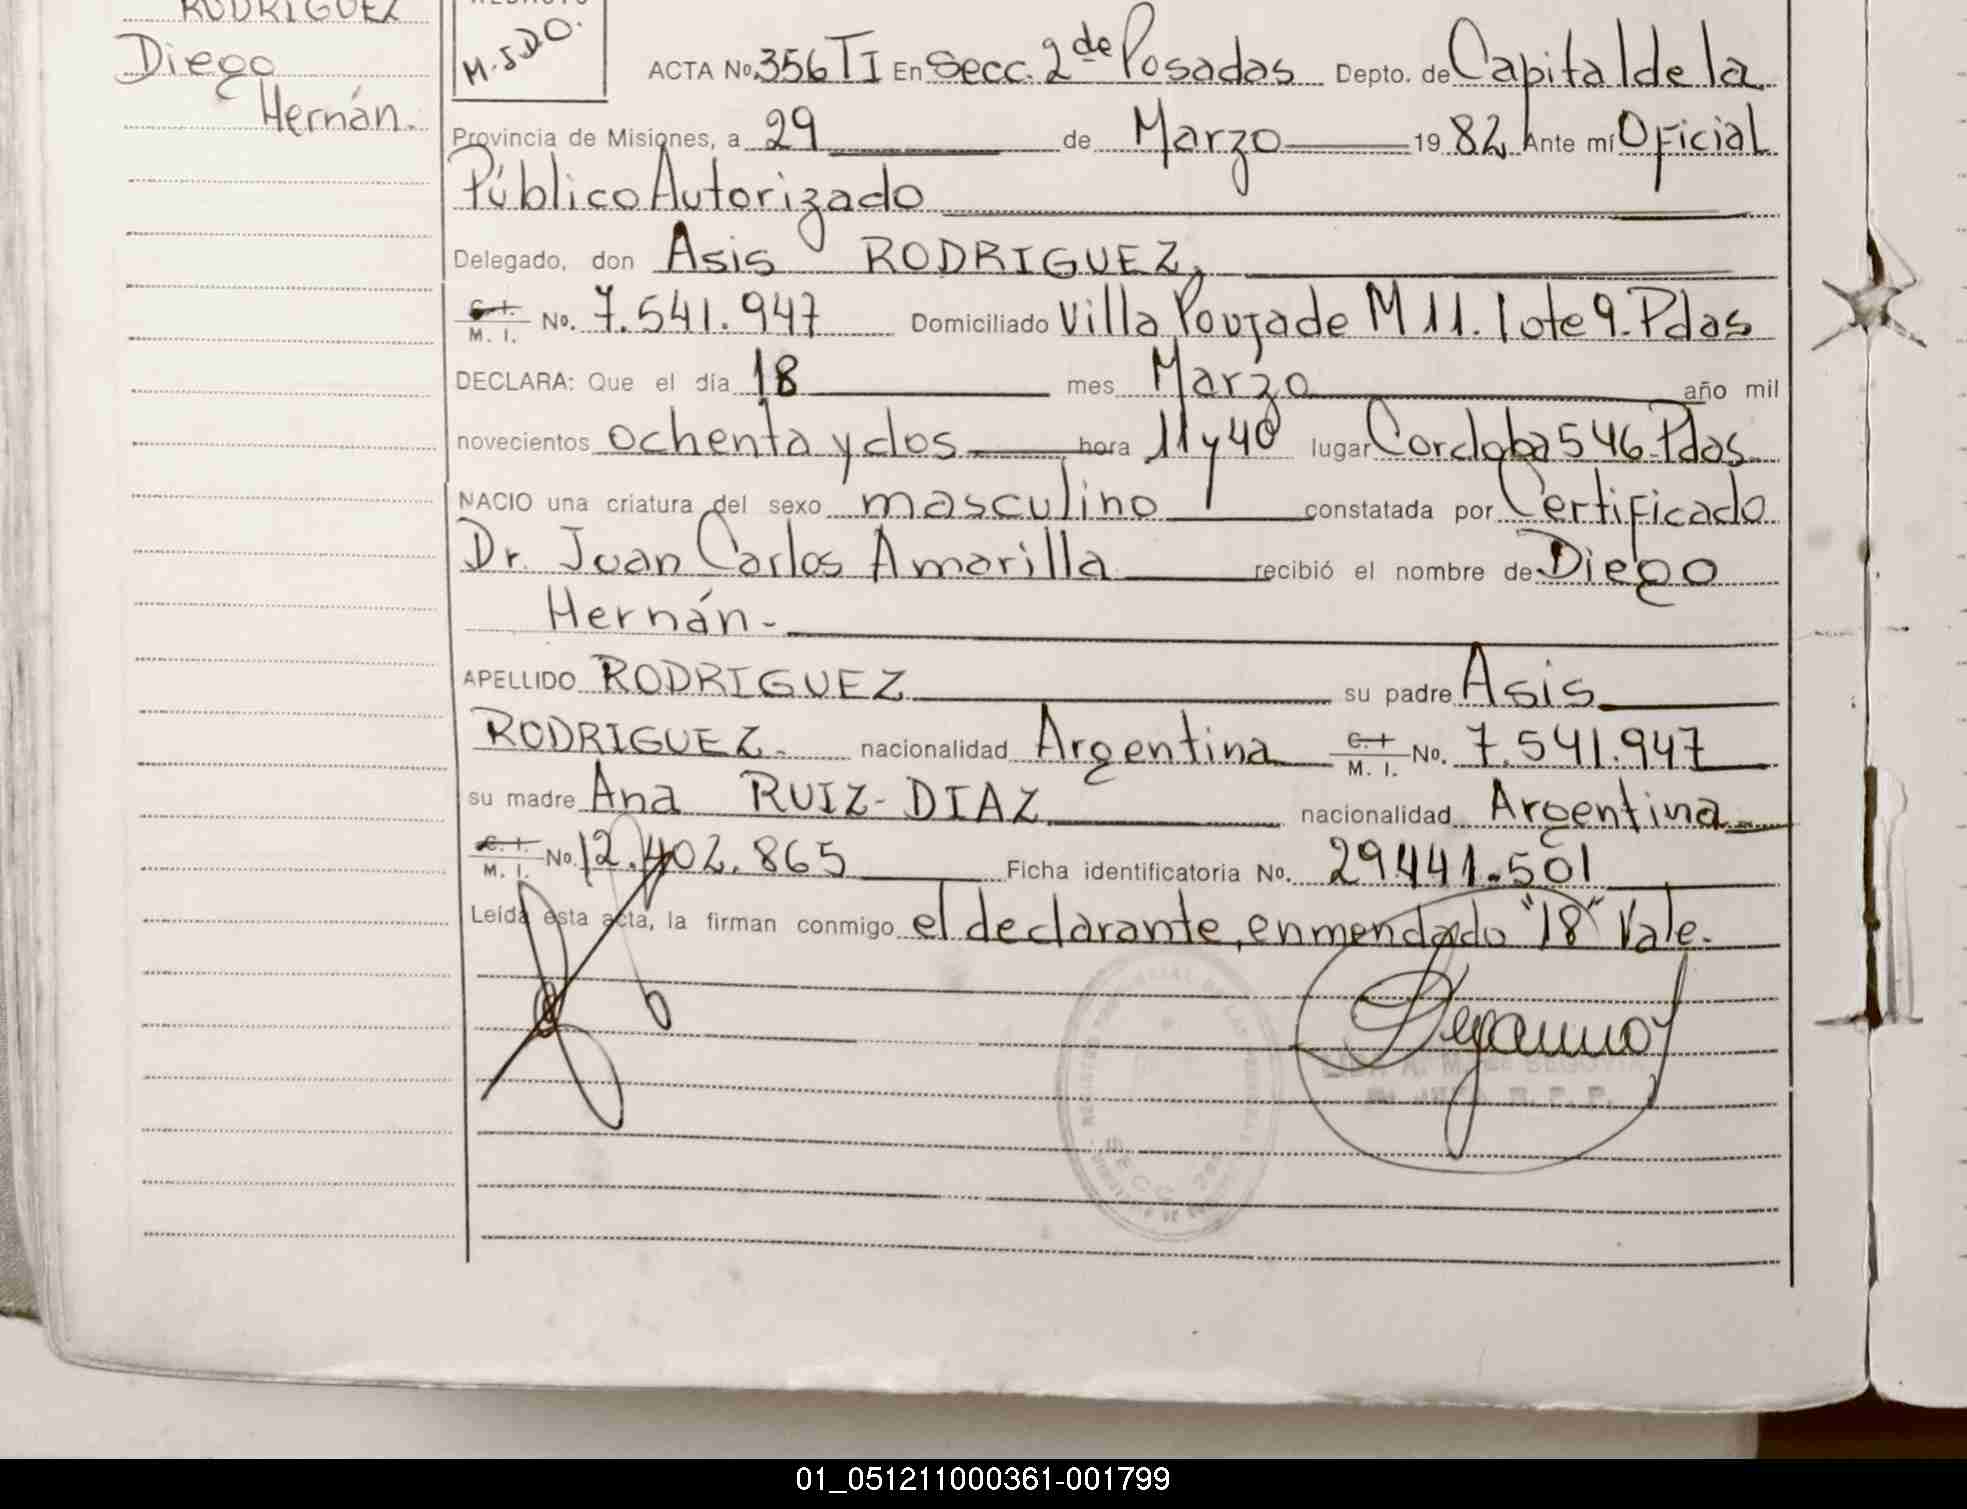 RODRIGUEZ
Diego
Hernán.
M.S.D.O.
ACTA No. 356 TI En Secc. 2de Posadas Depto. de Capital de la
Provincia de Misiones, a 29 de Marzo 1982 Ante mí Oficial
Público Autorizado
Delegado, don Asis RODRIGUEZ,
C. I. M. I. No. 7.541.947 Domiciliado Villa Poujade M 11. lote 9. Pdas
DECLARA: Que el día 18 mes Marzo año mil
novecientos ochenta y dos hora 11 y 40 lugar Cordoba 546 Pdas.
NACIO una criatura del sexo masculino constatada por Certificado
Dr. Juan Carlos Amarilla recibió el nombre de Diego
Hernán.-
APELLIDO RODRIGUEZ su padre Asis
RODRIGUEZ. nacionalidad Argentina C. I. M. I. No. 7.541.947
su madre Ana RUIZ-DIAZ nacionalidad Argentina
C. I. M. I. No. 12.402.865 Ficha identificatoria No. 29441.501
Leída esta acta, la firman conmigo el declarante, enmendado "18" Vale.
SECC. 2da
01_051211000361-001799